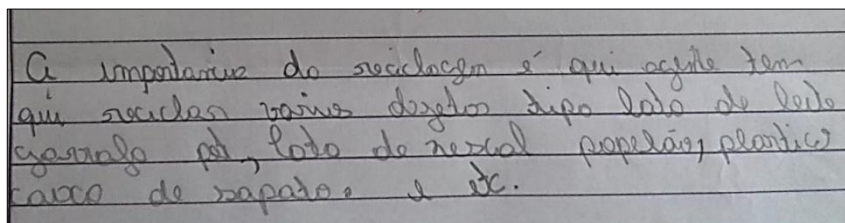 A importancia do reciclagem é qui agente tem
qui reciclar varios dogetos tipo lata de leite
garrafa pet, lata de nescal papelão, plastico
caixa de sapato. e etc.